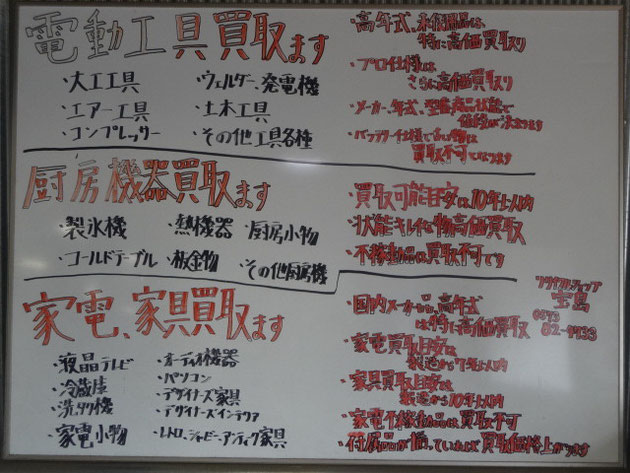 電動工具買取ます
・大工工具
・ウェルダー、発電機
・エアー工具
・土木工具
・コンプレッサー
・その他工具各種
・高年式、未使用品は、
特に高価買取り
・プロ仕様は
さらに高価買取り
・メーカー、年式、型番、商品状態で
価格が決まります
・バッテリー仕様で古い物は
買取不可になります
厨房機器買取ます
・製氷機
・熱機器
・厨房小物
・コールドテーブル
・板金物
・その他厨房機
・買取可能目安は10年以内
・状態キレイな物高価買取
・不稼動品は買取不可です
家電、家具買取ます
・液晶テレビ
・冷蔵庫
・洗濯機
・家電小物
・オーディオ機器
・パソコン
・デザイナーズ家具
・デザイナーズインテリア
・レトロ、シャビー、アンティク家具
・国内メーカーもしくは高年式
は特に高価買取
・家電買取目安は
製造から7年以内
・家具買取目安は
製造から10年以内
・家電不稼動品は買取不可
・付属品が揃っていれば買取価格上がります
リサイクルティップ
宝島
0893
02-4933